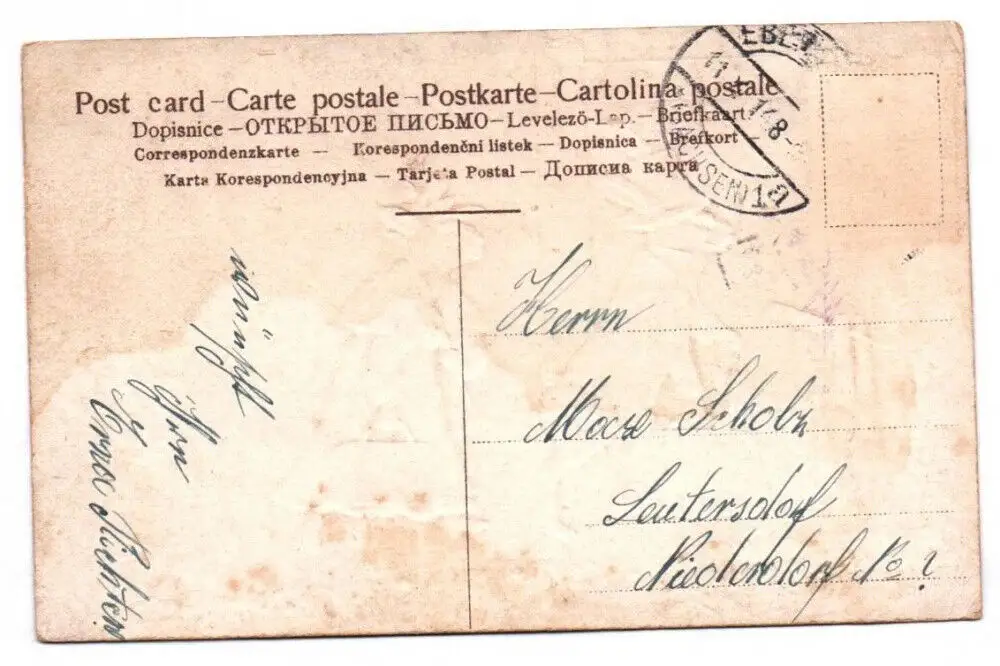 Post card – Carte postale – Postkarte – Cartolina postale
Dopisnice – ОТКРЫТОЕ ПИСЬМО – Levelező-Lap. – Briefkaart
Correspondenzkarte – Korespondenčni listek – Dopisnica – Brefkort –
Karta Korespondencyjna – Tarjeta Postal – Дописна карта
11
14 8-
1a
wünscht
Herrn
Max Scholz
Leutersdorf
Niederdorf No